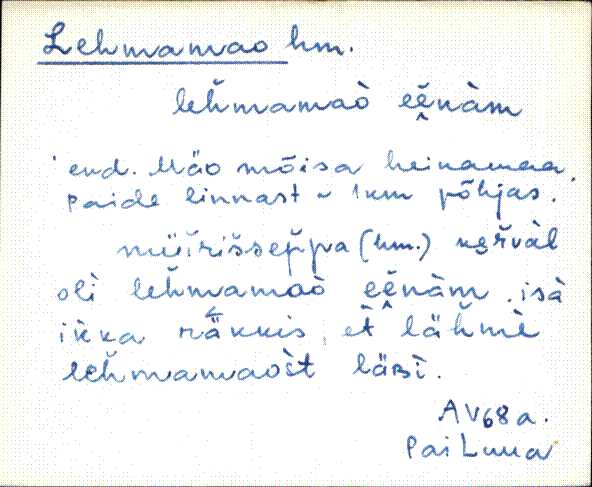 Lehmamao hm.
leȟmamaò eěnàm
end. Mäo mõisa heinamaa,
Paide linnast ~ 1km põhjas.
müǐrišsep̆pa (hm.) keřvàl
olì leȟmamaò eěnàm. isà
ikka räkkis, et̀ läȟmè
leȟmamaòšt läʙì.
AV68a.
Pai Luua